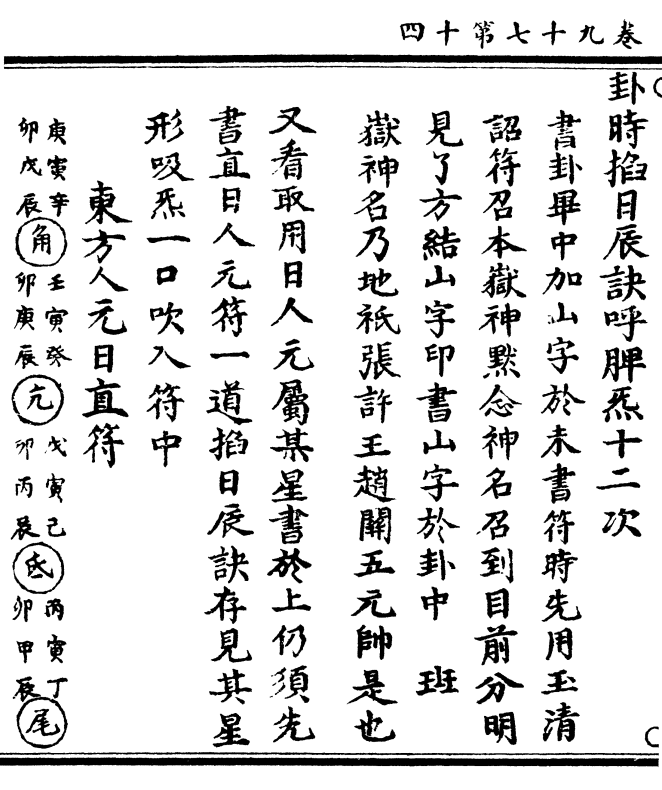 卷九十七第十四
卦時掐日辰訣呼脾炁十二次
書卦畢中加山字於未書符時先用玉清
詔符召本嶽神默念神名召到目前分明
見了方結山字印書山字於卦中　班
嶽神名乃地祇張許王趙關五元帥是也
又看取用日人元屬某星書於上仍須先
書直日人元符一道掐日辰訣存見其星
形吸炁一口吹入符中
東方人元日直符
庚寅辛卯戊辰角壬寅癸卯庚辰亢戊寅己卯丙辰氐丙寅丁卯甲辰尾